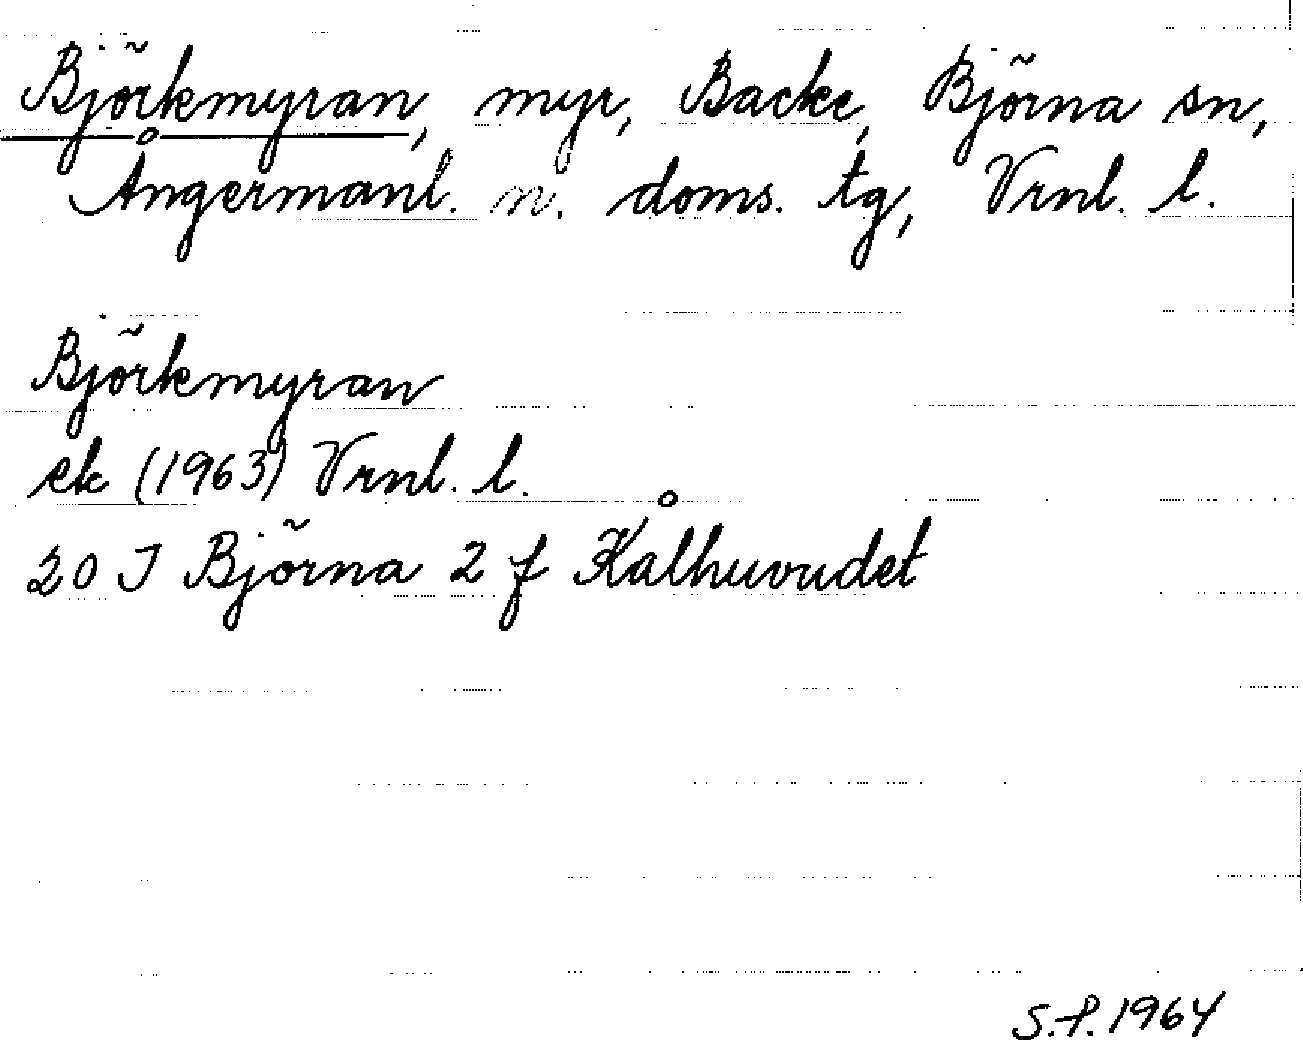 Björkmyran, myr, Backe, Björna sn,
Ångermanl. n. doms. tg, Vrnl. l.
Björkmyran
ek (1963) Vrnl. l.
20 J Björna 2 f Kålhuvudet
S.P. 1964